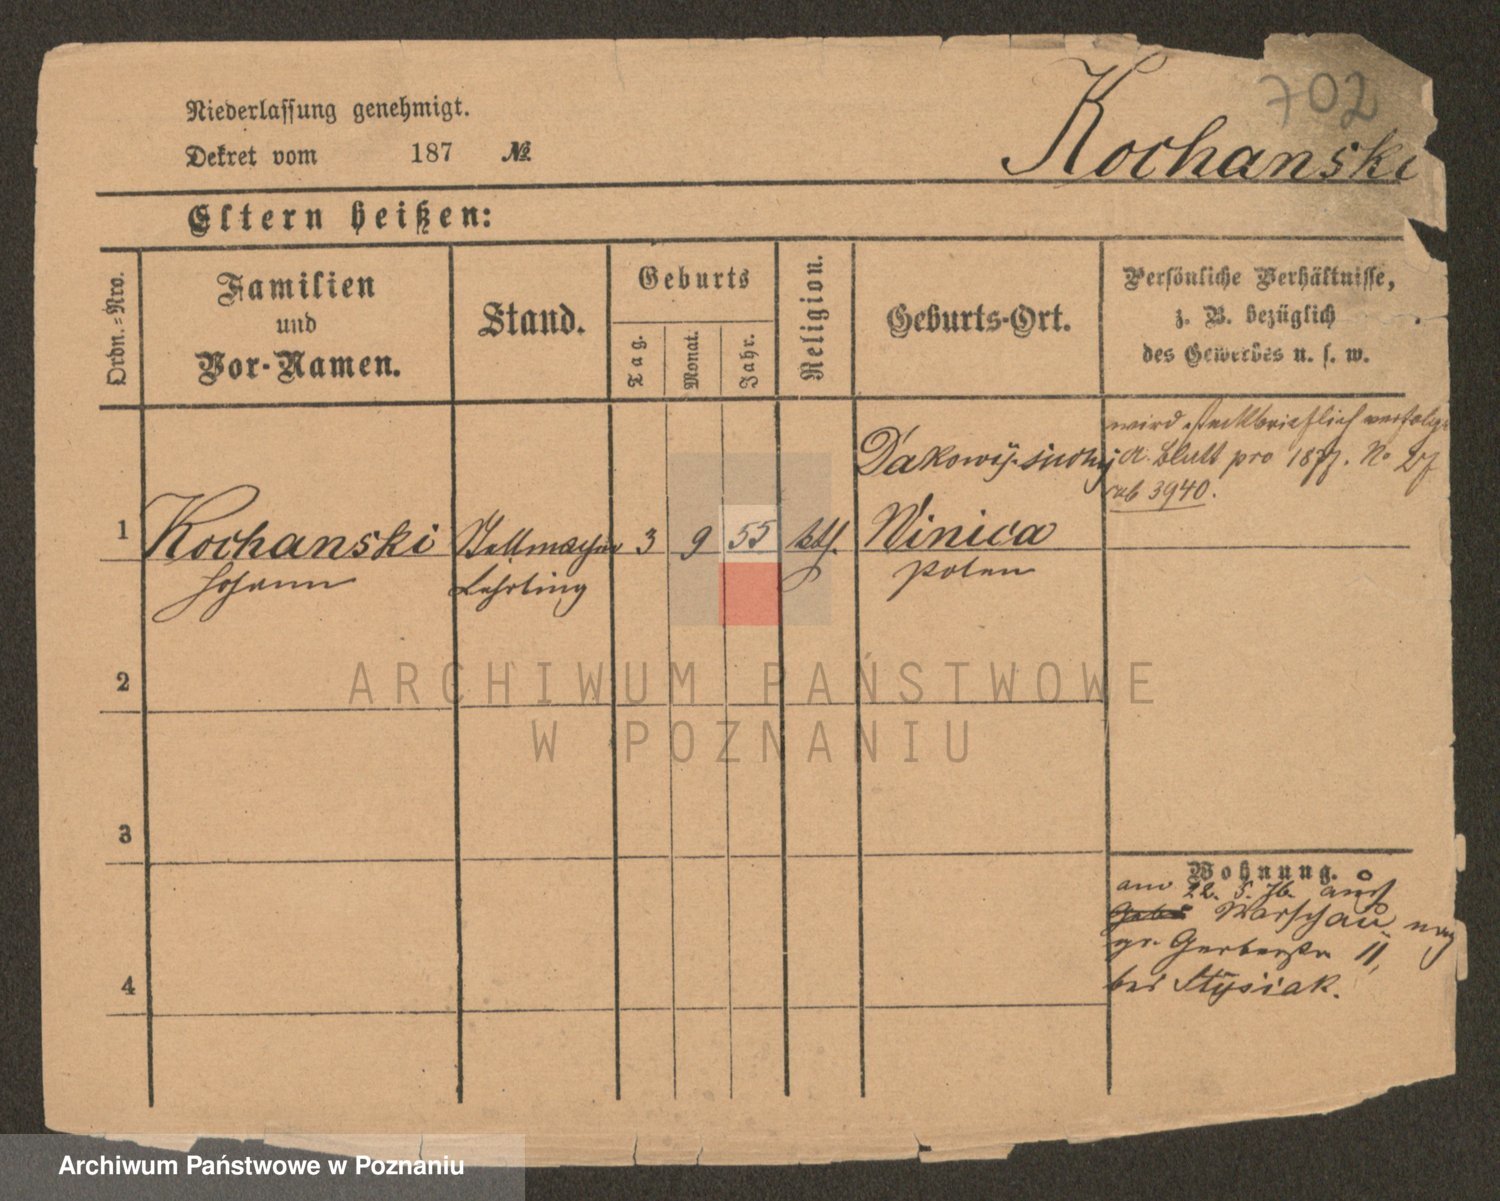 702
Kochanski
Niederlassung genehmigt.
Dekret vom 187 №
Eltern heißen:
Ordn.-Nro.
Familien
und
Vor-Namen.
Stand.
Geburts
Tag.
Monat.
Jahr.
Religion.
Geburts-Ort.
Persönliche Verhältnisse,
z. B. bezüglich
des Gewerbes u. s. w.
wird steckbrieflich verfolgt
A. Blatt pro 1877. No 27
sub 3940.
1 Kochanski 3 9 55 kth. Winica
Johann Lehrling Polen
2
3
4
Wohnung.
am 22. 5. 76. aus
Warschau nach
gr. Gerberstr 11,
bei Stysiak.
ARCHIWUM PAŃSTWOWE
W POZNANIU
Archiwum Państwowe w Poznaniu